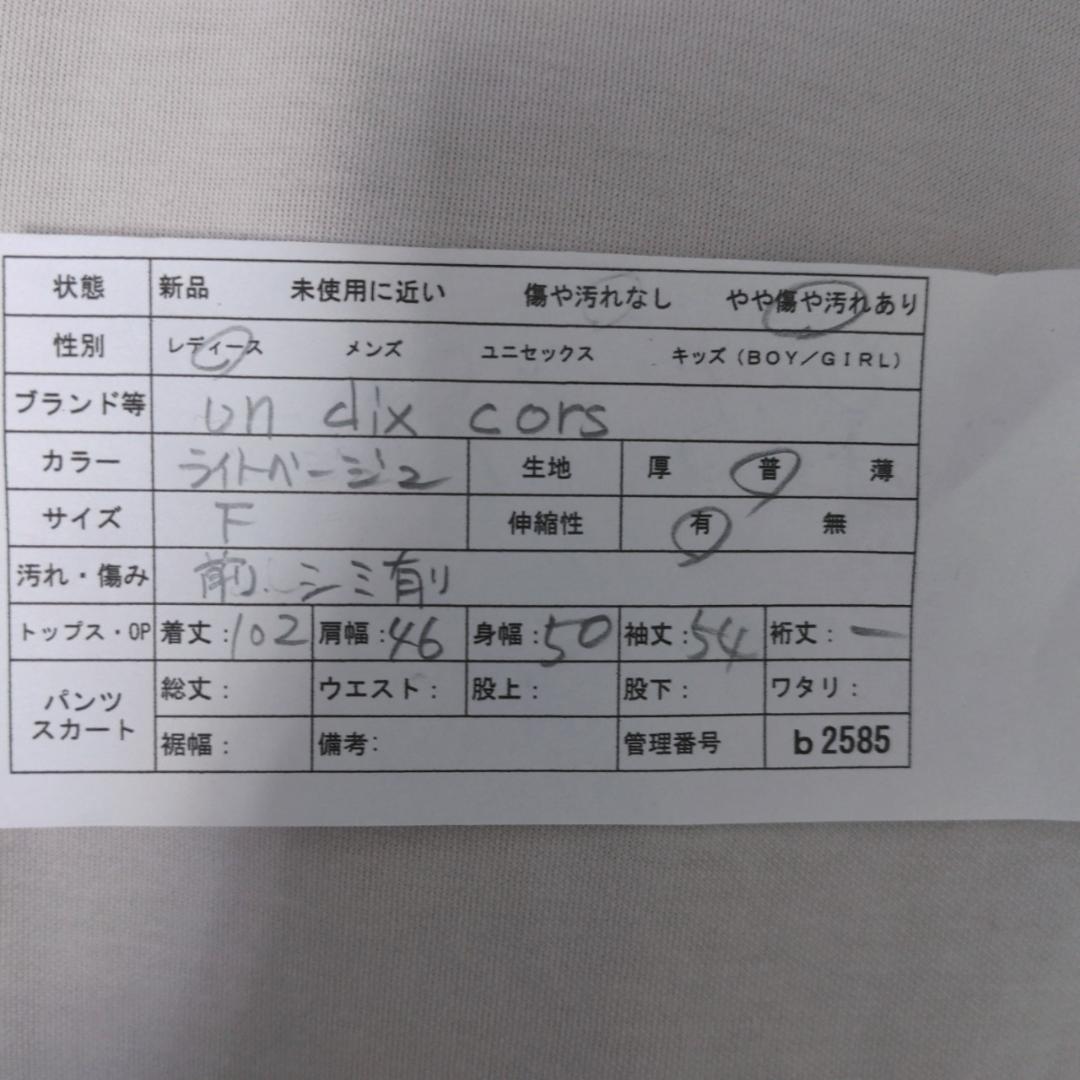 状態 新品 未使用に近い 傷や汚れなし やや傷や汚れあり
性別 レディース メンズ ユニセックス キッズ（BOY／GIRL）
ブランド等 un dix cors
カラー ライトベージュ 生地 厚 普 薄
サイズ F 伸縮性 有 無
汚れ・傷み 前、シミ有り
トップス・OP 着丈：102 肩幅：46 身幅：50 袖丈：54 裄丈：ー
パンツ スカート 総丈： ウエスト： 股上： 股下： ワタリ：
裾幅： 備考： 管理番号 b2585